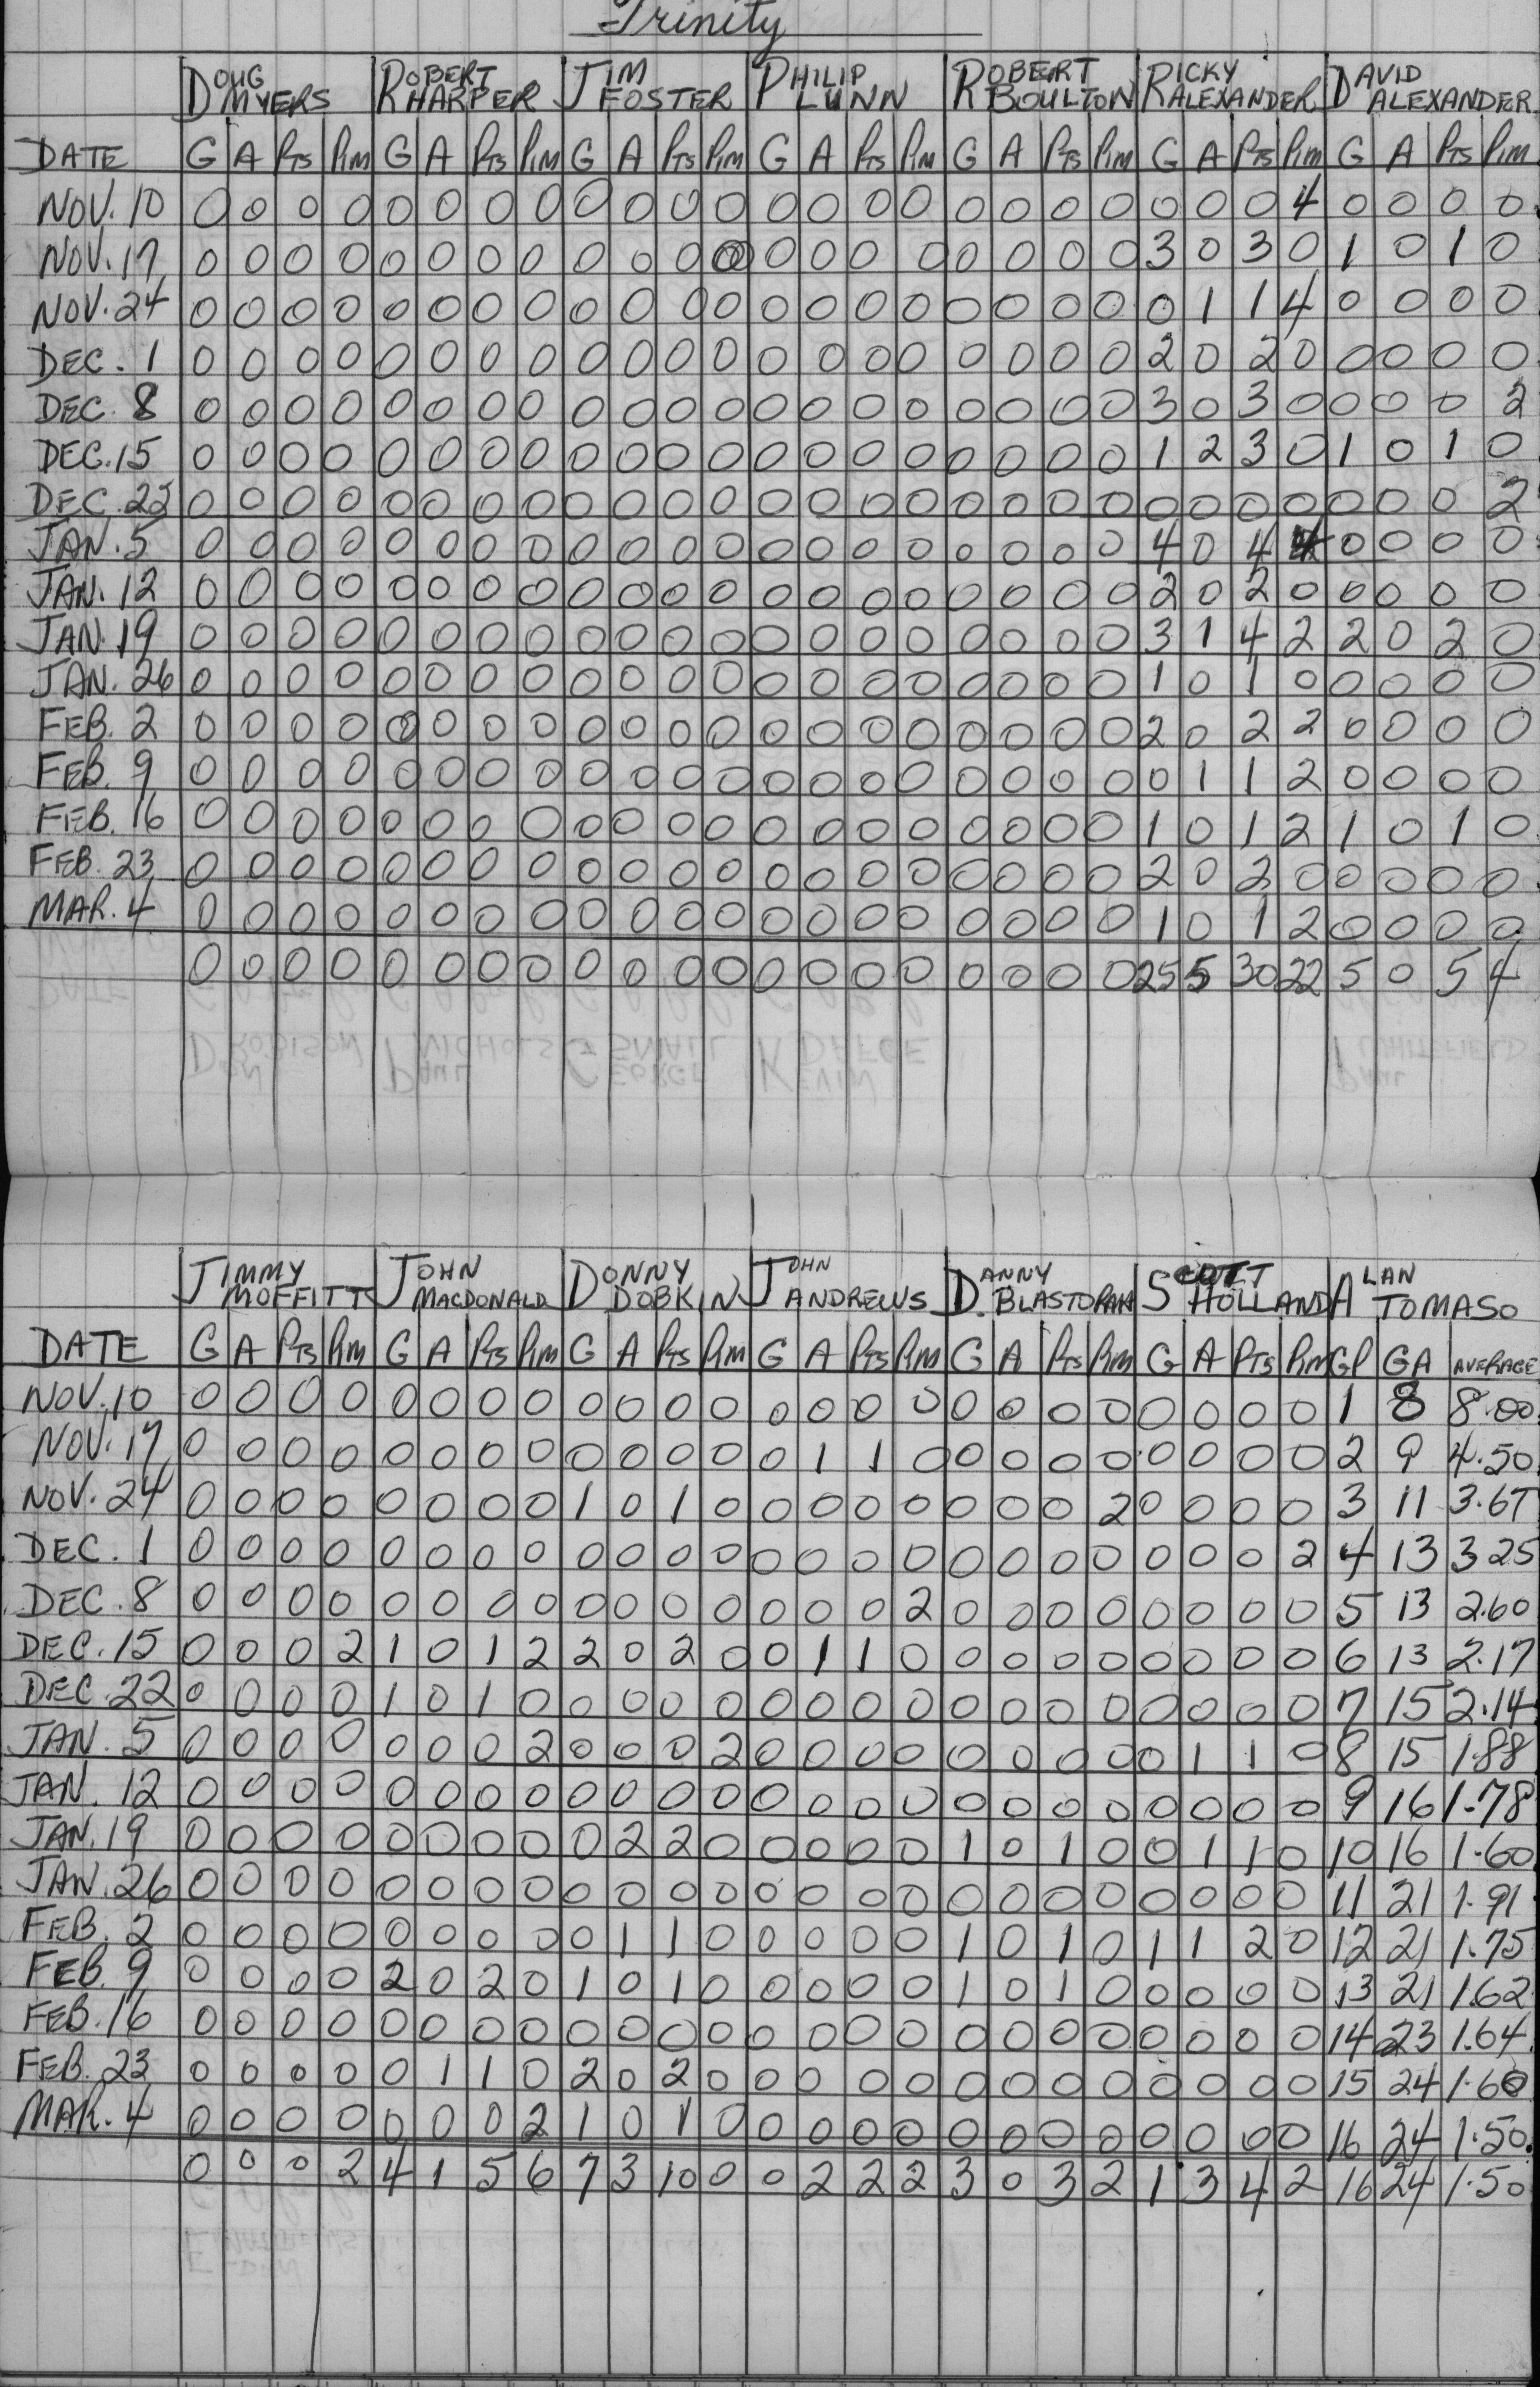 Trinity
DOUG MYERS ROBERT HARPER JIM FOSTER PHILIP LUNN ROBERT BOULTON RICKY ALEXANDER DAVID ALEXANDER
DATE G A PTS PIM G A PTS PIM G A PTS PIM G A PTS PIM G A PTS PIM G A PTS PIM G A PTS PIM
NOV. 10 0 0 0 0 0 0 0 0 0 0 0 0 0 0 0 0 0 0 0 0 0 0 0 4 0 0 0 0
NOV. 17 0 0 0 0 0 0 0 0 0 0 0 0 0 0 0 0 0 0 0 0 3 0 3 0 1 0 1 0
NOV. 24 0 0 0 0 0 0 0 0 0 0 0 0 0 0 0 0 0 0 0 0 0 1 1 4 0 0 0 0
DEC. 1 0 0 0 0 0 0 0 0 0 0 0 0 0 0 0 0 0 0 0 0 2 0 2 0 0 0 0 0
DEC. 8 0 0 0 0 0 0 0 0 0 0 0 0 0 0 0 0 0 0 0 0 3 0 3 0 0 0 0 2
DEC. 15 0 0 0 0 0 0 0 0 0 0 0 0 0 0 0 0 0 0 0 0 1 2 3 0 1 0 1 0
DEC. 22 0 0 0 0 0 0 0 0 0 0 0 0 0 0 0 0 0 0 0 0 0 0 0 0 0 0 0 2
JAN. 5 0 0 0 0 0 0 0 0 0 0 0 0 0 0 0 0 0 0 0 0 4 0 4 4 0 0 0 0
JAN. 12 0 0 0 0 0 0 0 0 0 0 0 0 0 0 0 0 0 0 0 0 2 0 2 0 0 0 0 0
JAN. 19 0 0 0 0 0 0 0 0 0 0 0 0 0 0 0 0 0 0 0 0 3 1 4 2 2 0 2 0
JAN. 26 0 0 0 0 0 0 0 0 0 0 0 0 0 0 0 0 0 0 0 0 1 0 1 0 0 0 0 0
FEB. 2 0 0 0 0 0 0 0 0 0 0 0 0 0 0 0 0 0 0 0 0 2 0 2 2 0 0 0 0
FEB. 9 0 0 0 0 0 0 0 0 0 0 0 0 0 0 0 0 0 0 0 0 0 1 1 2 0 0 0 0
FEB. 16 0 0 0 0 0 0 0 0 0 0 0 0 0 0 0 0 0 0 0 0 1 0 1 2 1 0 1 0
FEB. 23 0 0 0 0 0 0 0 0 0 0 0 0 0 0 0 0 0 0 0 0 2 0 2 0 0 0 0 0
MAR. 4 0 0 0 0 0 0 0 0 0 0 0 0 0 0 0 0 0 0 0 0 1 0 1 2 0 0 0 0
0 0 0 0 0 0 0 0 0 0 0 0 0 0 0 0 0 0 0 0 25 5 30 22 5 0 5 4
JIMMY MOFFITT JOHN MACDONALD DONNY DOBKIN JOHN ANDREWS DANNY BLASTORAH SCOTT HOLLAND ALAN TOMASO
DATE G A PTS PIM G A PTS PIM G A PTS PIM G A PTS PIM G A PTS PIM G A PTS PIM GP GA AVERAGE
NOV. 10 0 0 0 0 0 0 0 0 0 0 0 0 0 0 0 0 0 0 0 0 0 0 0 0 1 8 8.00
NOV. 17 0 0 0 0 0 0 0 0 0 0 0 0 0 1 1 0 0 0 0 0 0 0 0 0 2 9 4.50
NOV. 24 0 0 0 0 0 0 0 0 1 0 1 0 0 0 0 0 0 0 0 2 0 0 0 0 3 11 3.67
DEC. 1 0 0 0 0 0 0 0 0 0 0 0 0 0 0 0 0 0 0 0 0 0 0 0 2 4 13 3.25
DEC. 8 0 0 0 0 0 0 0 0 0 0 0 0 0 0 0 2 0 0 0 0 0 0 0 0 5 13 2.60
DEC. 15 0 0 0 2 1 0 1 2 2 0 2 0 0 1 1 0 0 0 0 0 0 0 0 0 6 13 2.17
DEC. 22 0 0 0 0 1 0 1 0 0 0 0 0 0 0 0 0 0 0 0 0 0 0 0 0 7 15 2.14
JAN. 5 0 0 0 0 0 0 0 2 0 0 0 2 0 0 0 0 0 0 0 0 0 1 1 0 8 15 1.88
JAN. 12 0 0 0 0 0 0 0 0 0 0 0 0 0 0 0 0 0 0 0 0 0 0 0 0 9 16 1.78
JAN. 19 0 0 0 0 0 0 0 0 0 2 2 0 0 0 0 0 1 0 1 0 0 1 1 0 10 16 1.60
JAN. 26 0 0 0 0 0 0 0 0 0 0 0 0 0 0 0 0 0 0 0 0 0 0 0 0 11 21 1.91
FEB. 2 0 0 0 0 0 0 0 0 0 1 1 0 0 0 0 0 1 0 1 0 1 1 2 0 12 21 1.75
FEB. 9 0 0 0 0 2 0 2 0 1 0 1 0 0 0 0 0 1 0 1 0 0 0 0 0 13 21 1.62
FEB. 16 0 0 0 0 0 0 0 0 0 0 0 0 0 0 0 0 0 0 0 0 0 0 0 0 14 23 1.64
FEB. 23 0 0 0 0 0 1 1 0 2 0 2 0 0 0 0 0 0 0 0 0 0 0 0 0 15 24 1.60
MAR. 4 0 0 0 0 0 0 0 2 1 0 1 0 0 0 0 0 0 0 0 0 0 0 0 0 16 24 1.50
0 0 0 2 4 1 5 6 7 3 10 0 0 2 2 2 3 0 3 2 1 3 4 2 16 24 1.50